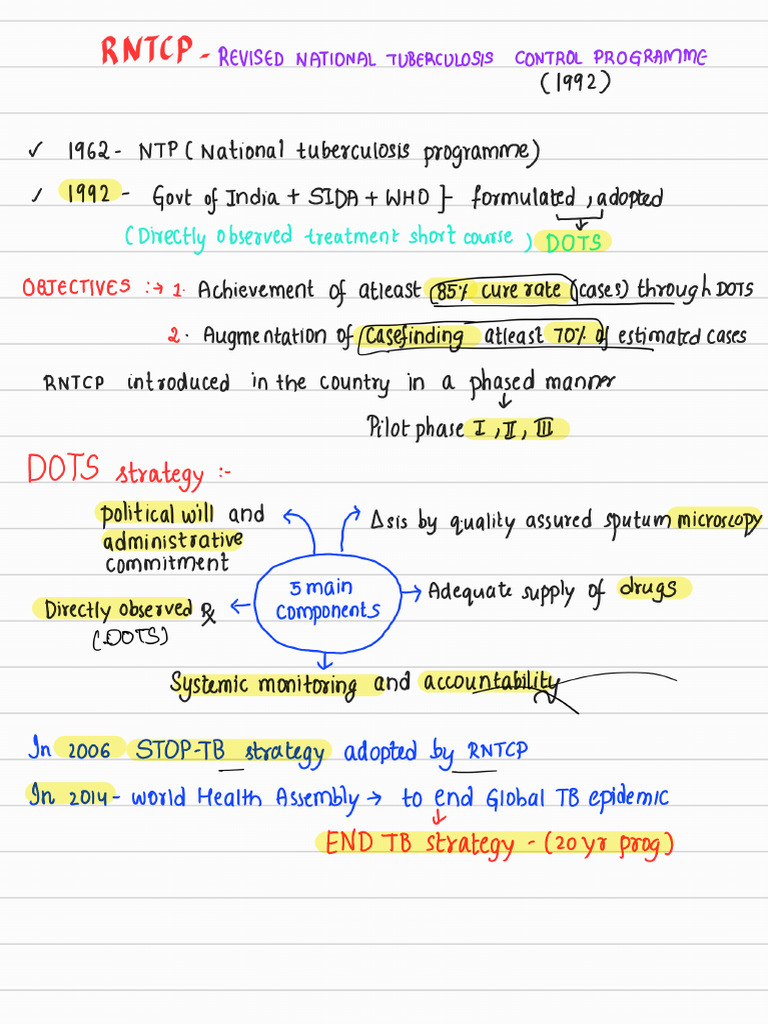 RNTCP - REVISED NATIONAL TUBERCULOSIS CONTROL PROGRAMME
(1992)
✓ 1962 - NTP (National tuberculosis programme)
✓ 1992 - Govt of India + SIDA + WHO } - formulated, adopted
(Directly observed treatment short course) DOTS
OBJECTIVES :→ 1. Achievement of atleast 85% cure rate (cases) through DOTS
2. Augmentation of casefinding atleast 70% of estimated cases
RNTCP introduced in the country in a phased manner
↓
Pilot phase I, II, III
DOTS strategy :-
political will and
administrative
commitment
Δsis by quality assured sputum microscopy
5 main
components
Adequate supply of drugs
Directly observed ℞
(DOTS)
Systemic monitoring and accountability
In 2006 STOP-TB strategy adopted by RNTCP
In 2014 - world Health Assembly → to end Global TB epidemic
↓
END TB strategy - (20 yr prog)